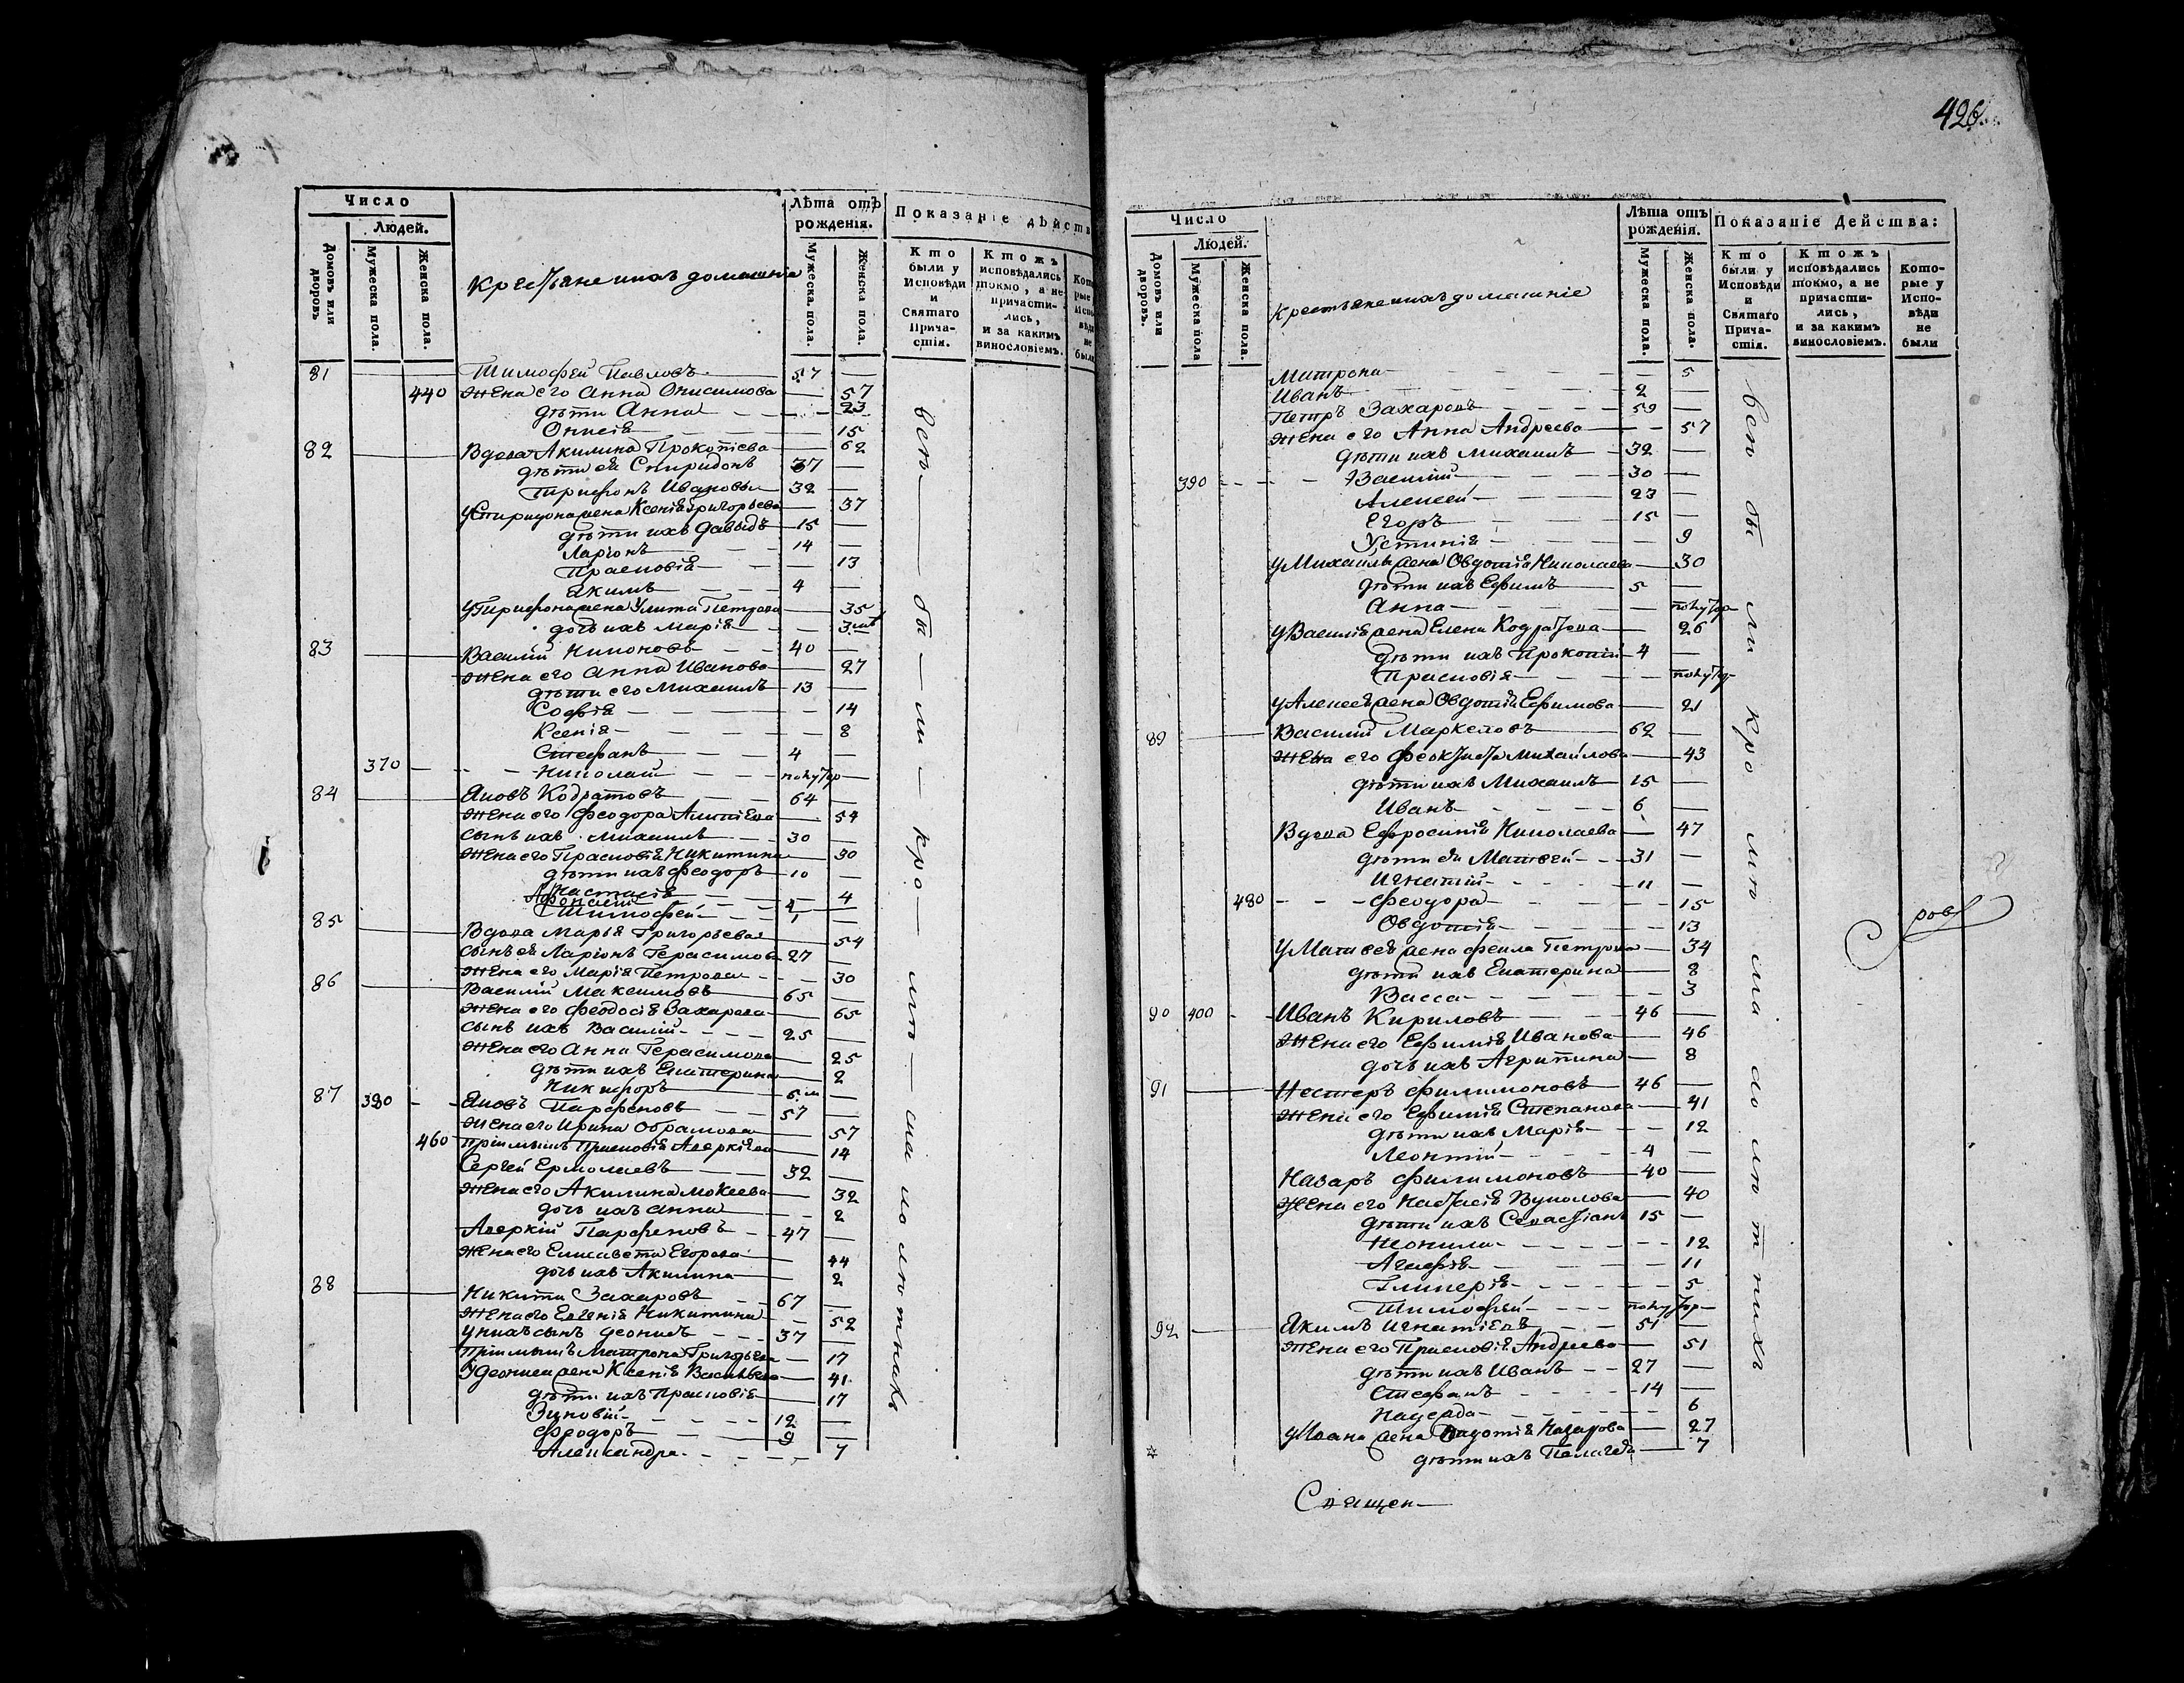 Число
Людей.
Домовъ или дворовъ
Мужеска пола.
Женска пола.
Крестьяне ихъ домашніе
Лѣта отъ рожденія.
Мужеска пола.
Женска пола.
Показаніе дѣйств
Кто были у Исповѣди и Святаго Причастія.
Ктожъ исповѣдались токмо, а не причастились, и за какимъ винословіемъ.
81 Тимофей Павловъ 57
440 жена его Анна Онисимова 57
дѣти Анна 23
Онисія 15
82 Вдова Акилина Прокопіева 62
дѣти ея Спиридонъ 37
Трифонъ Ивановы 32
у Спиридона жена Ксенія Григорьева 37
дѣти ихъ Давыдъ 15
Ларіонъ 14
Прасковія 13
Якимъ 4
у Трифона жена Улита Петрова 35
дочь ихъ Марія 3
83 Василій Никоновъ 40
жена его Анна Иванова 27
дѣти его Михаилъ 13
Софія 14
Ксенія 8
Стефанъ 4
370 Николай полутор
84 Яковъ Кодратовъ 64
жена его Феодора 54
сынъ ихъ Михаилъ 30
жена его Прасковія Никитина 30
дѣти ихъ Феодоръ 10
Анастасія 4
Афонасій 4
Тимофей 1
85 Вдова Марья Григорьева 54
сынъ ея Ларіонъ Герасимовъ 27
жена его Марія Петрова 30
86 Василій Максимовъ 65
жена его Феодосія Захарова 65
сынъ ихъ Василій 25
жена его Анна Герасимова 25
дѣти ихъ Екатерина 2
Никифоръ 6 м
87 380 Яковъ Парфеновъ 57
жена его Ирина Обрамова 57
460 пріимышъ Прасковія Аверкіева 14
Сергей Ермолаевъ 32
жена его Акилина Мокеева 32
дочь ихъ Анна 2
Аверкій Парфеновъ 47
жена его Елисавета Егорова 44
дочь ихъ Акилина 2
88 Никита Захаровъ 67
жена его Евгенія Никитина 52
у нихъ сынъ Деонисъ 37
пріимышъ Матрона Григорьева 17
У Деониса жена Ксенія Васильева 41
дѣти ихъ Прасковія 17
Зиновій 12
Феодоръ 9
Александра 7
всѣ бы ли кро мѣ ма ло лѣ тнихъ
426
Число
Людей.
Домовъ или дворовъ.
Мужеска пола
Женска пола.
Крестьяне ихъ домашніе
Лѣта отъ рожденія.
Мужеска пола.
Женска пола.
Показаніе Действа:
Кто были у Исповѣди и Святаго Причастія.
Ктожъ исповѣдались токмо, а не причастились, и за какимъ винословіемъ.
Которые у Исповѣди не были
Матрона 5
Иванъ 2
Петръ Захаровъ 59
жена его Анна Андреева 57
дѣти ихъ Михаилъ 32
390 Василій 30
Алексей 23
Егоръ 15
Устинія 9
у Михаила жена Овдотія Николаева 30
дѣти ихъ Ефимъ 5
Анна полутор
у Василія жена Елена Кодратова 26
дѣти ихъ Прокопій 4
Прасковія полутор
у Алексея жена Овдотія Ефимова 21
89 Василій Маркеловъ 62
жена его Феоктиста Михайлова 43
дѣти ихъ Михаилъ 15
Иванъ 6
Вдова Ефросинія Николаева 47
дѣти ея Матвей 31
Игнатій 11
480 Феодора 15
Овдотія 13
у Матвея жена Фекла Петрова 34
дѣти ихъ Екатерина 8
Васса 3
90 400 Иванъ Кириловъ 46
жена его Ефимія Иванова 46
дочь ихъ Агрипина 8
91 Нестеръ Филимоновъ 46
жена его Ефимія Степанова 41
дѣти ихъ Марія 12
Леонтій 4
Назаръ Филимоновъ 40
жена его Настасія Вуколова 40
дѣти ихъ Севастіанъ 15
Неонила 12
Агафія 11
Гликерія 5
Тимофей полутор
92 Якимъ Игнатіевъ 51
жена его Прасковія Андреева 51
дѣти ихъ Иванъ 27
Стефанъ 14
Надежда 6
у Ивана жена Овдотія Назарова 27
дѣти ихъ Пелагея 7
всѣ бы ли кро мѣ ма ло лѣ т нихъ
ровъ
Священ